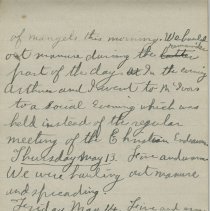 of mangels this morning. We hauled
out manure during the remainder
part of the day. In the evening
Arthur and I went to Mr Ivers
to a Social Evening which was
held instead of the regular
meeting of the Christian Endeavor
Thursday May 13. Fine and warm
We were hauling out manure
and spreading
Friday May 14. Fine and warm